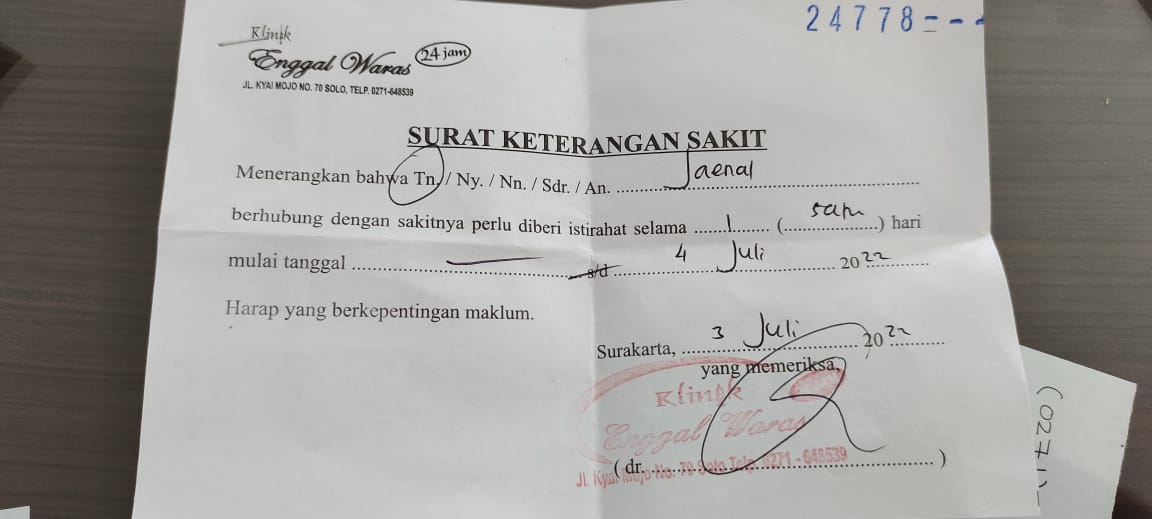 24778=--
Klinik
Enggal Waras 24 jam
JL. KYAI MOJO NO. 70 SOLO, TELP. 0271-648539
SURAT KETERANGAN SAKIT
Menerangkan bahwa Tn. / Ny. / Nn. / Sdr. / An. Jaenal
berhubung dengan sakitnya perlu diberi istirahat selama 1 (satu) hari
mulai tanggal — s/d 4 Juli 2022
Harap yang berkepentingan maklum.
Surakarta, 3 Juli 2022
yang memeriksa,
Klinik
Enggal Waras
(dr. )
Jl. Kyai Mojo No. 70 Solo Telp. 0271 - 648539
(0271)